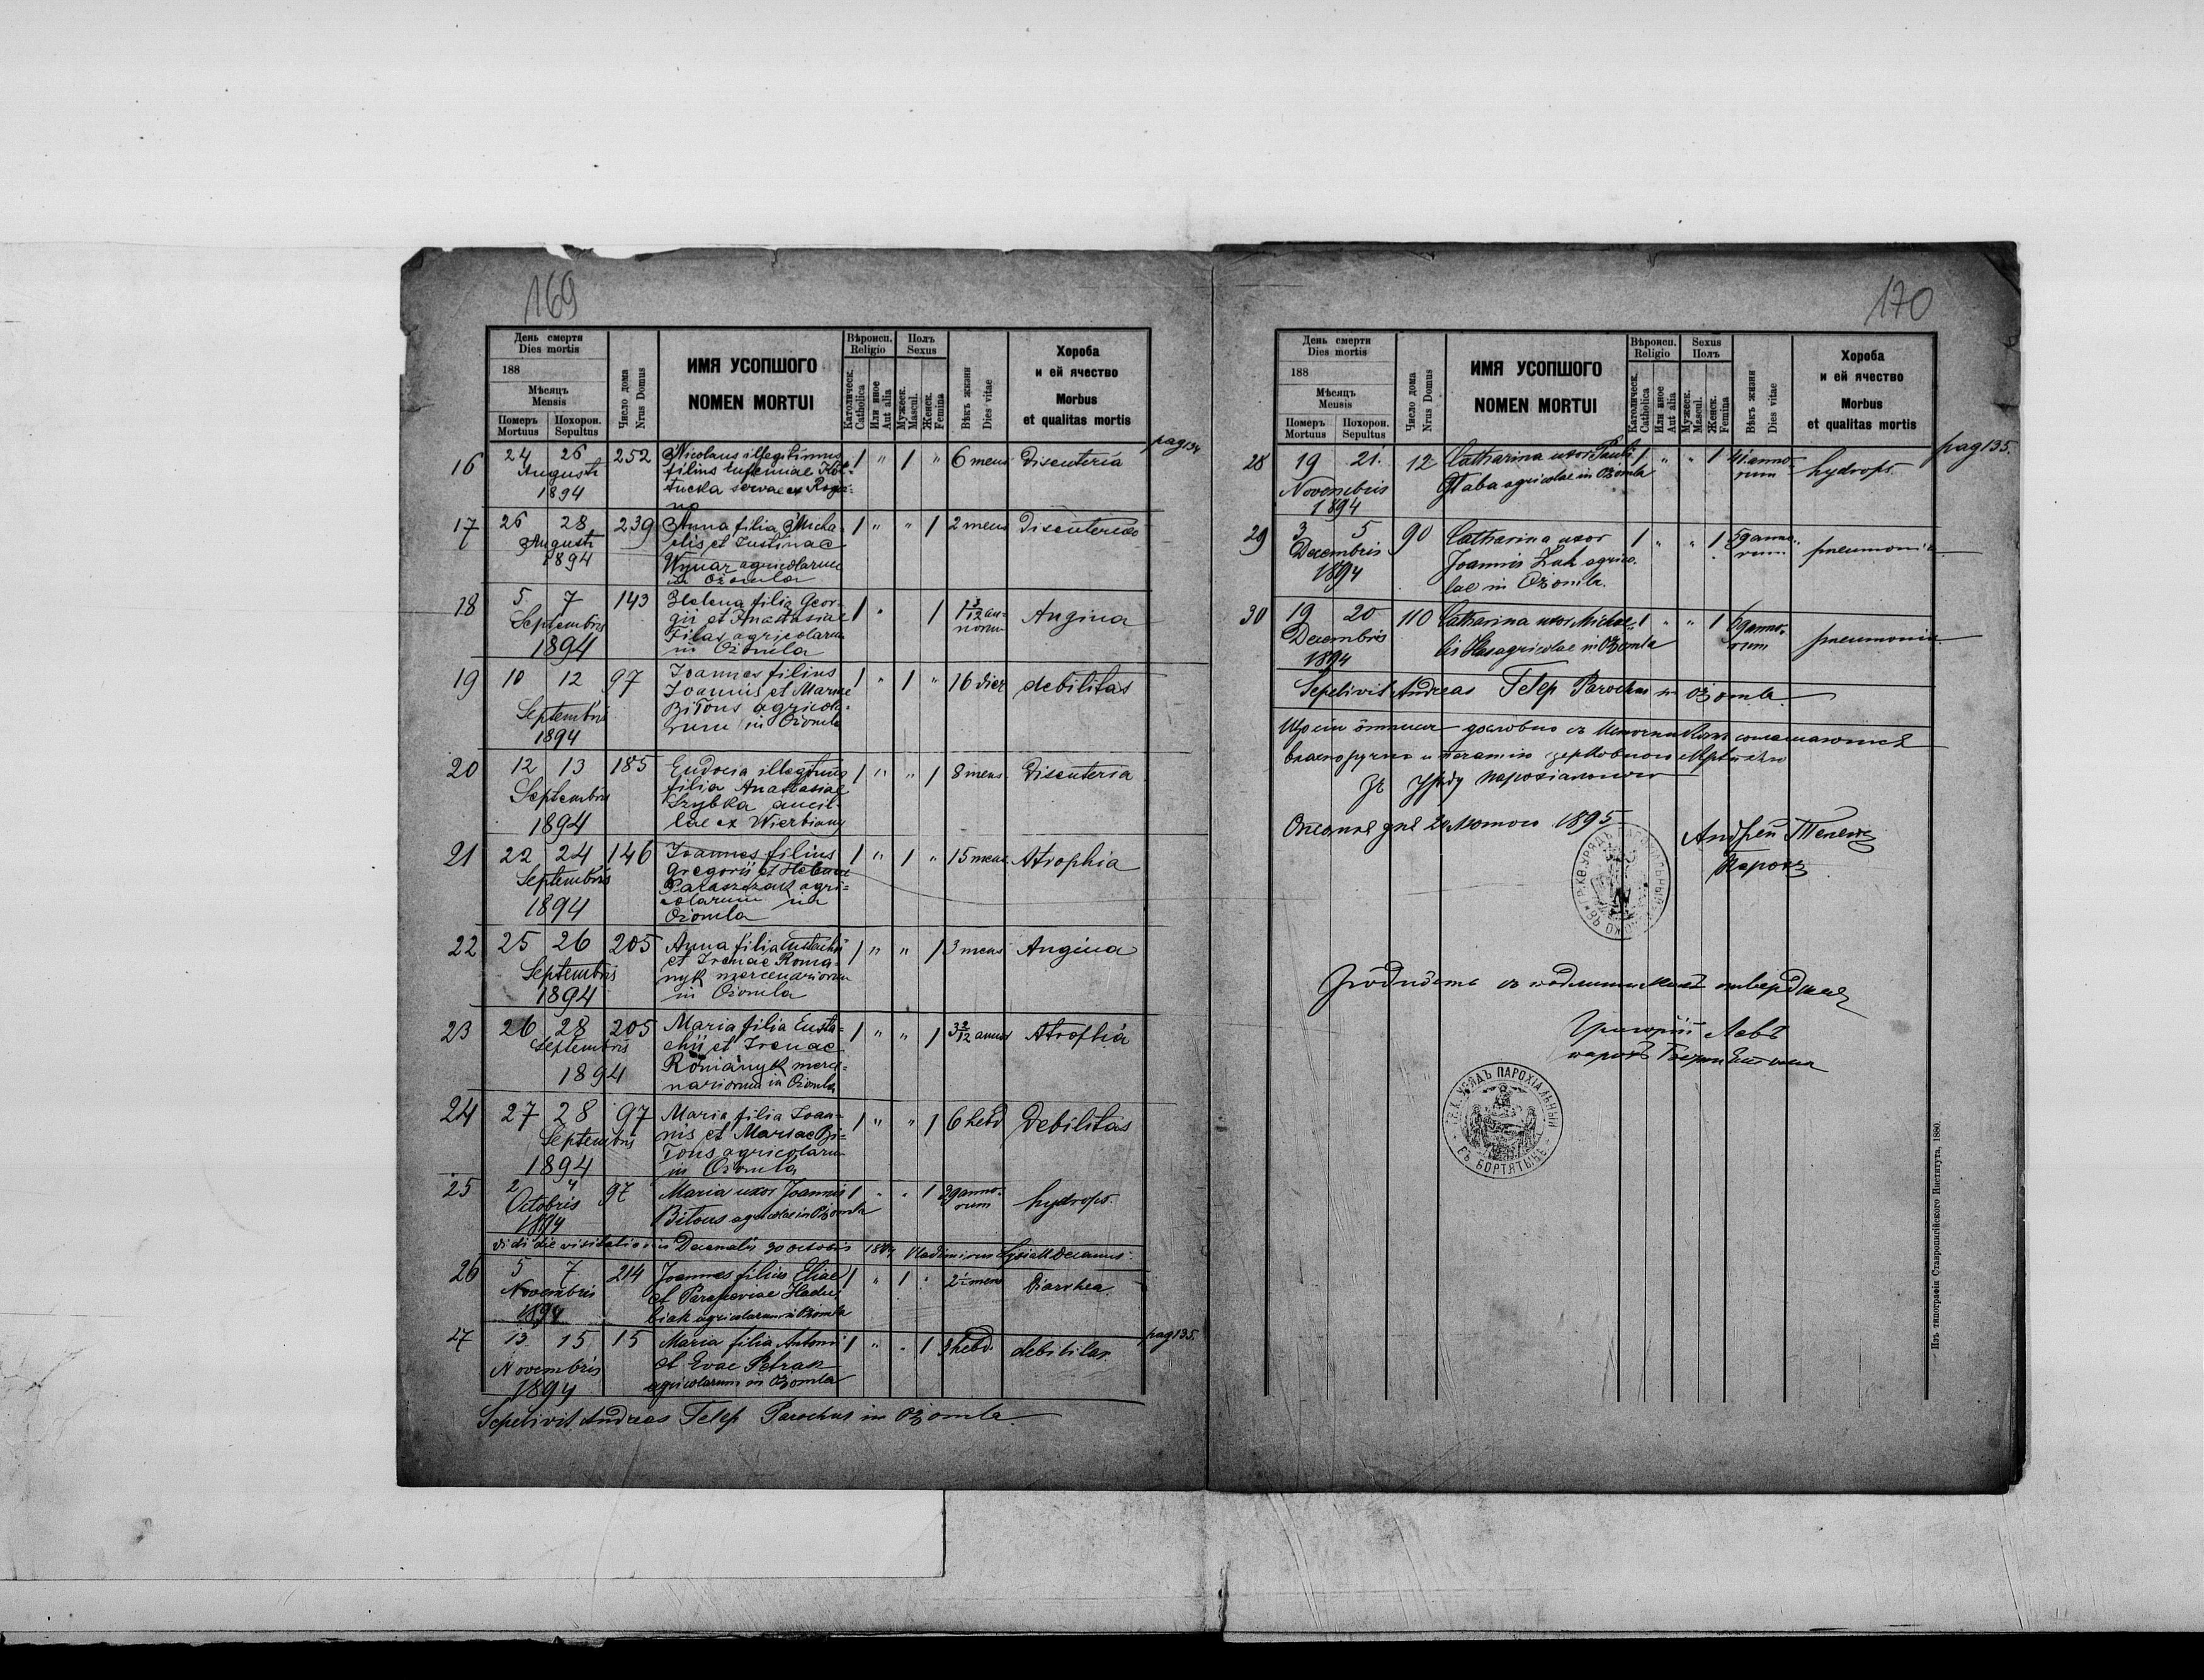 169
День смерти
Dies mortis
188
Мѣсяць
Mensis
Померъ
Mortuus
Похорон.
Sepultus
Число дома
Nrus Domus
ИМЯ УСОПШОГО
NOMEN MORTUI
Вѣроисп.
Religio
Католическ.
Catholica
Или иное
Aut alia
Полъ
Sexus
Мужеск.
Mascul.
Женск.
Femina
Вѣкъ жизни
Dies vitae
Хороба
и ей ячество
Morbus
et qualitas mortis
pag 134
16 24 26 252 Nicolaus illegitimus 1 " 1 " 6 mens Disenteria
Augusti filius Eufemiae
1894 tucka servae ex
no
17 26 28 239 Anna filia Micha- 1 " " 1 2 mens Disenteria
Augusti elis et Justinae
1894 Wynar agricolarum
in Ożomla
18 5 7 143 Helena filia Geor- 1 " 1 1 3/12 an- Angina
Septembris gii et Anastasiae norum
1894 Filas agricolarum
in Ożomla
19 10 12 97 Joannes filius 1 " 1 " 16 dier debilitas
Septembris Joannis et Mariae
1894 Bitous agricola-
rum in Ożomla
20 12 13 185 Eudocia illegitima 1 " " 1 8 mens. Disenteria
Septembris filia Anastasiae
1894 Szybka ancil-
lae ex Wierbiany
21 22 24 146 Joannes filius 1 " 1 " 15 mens Atrophia
Septembris Gregorii et Helenae
1894 Paraszczak agri-
colarum in
Ożomla
22 25 26 205 Anna filia Eustachii 1 " " 1 3 mens Angina
Septembris et Irenae Roma-
1894 nyk mercenariorum
in Ożomla
23 26 28 205 Maria filia Eusta- 1 " " 1 3 2/12 annor Atrophia
Septembris chii et Irenae
1894 Romanyk merce-
nariorum in Ożomla
24 27 28 97 Maria filia Joan- 1 " " 1 6 hebd Debilitas
Septembris nis et Mariae Bi-
1894 tous agricolarum
in Ożomla
25 2 4 97 Maria uxor Joannis 1 " " 1 29 anno- hydrops.
Octobris Bitous agricolae in Ożomla rum
1894
Vidi die visitationis Decanalis 30 octobris 1894 Vladimirus Decanus.
26 5 7 214 Joannes filius Eliae 1 " 1 " 2 1/2 mens Diarrhea
Novembris et Parasceviae Hadu-
1894 biak agricolarum in Ożomla
27 13 15 15 Maria filia Antonii 1 " " 1 3 hebd. debilitas
Novembris et Evae Petrak
1894 agricolarum in Ożomla
pag 135.
Sepelivit Andreas Telep Parochus in Ożomla
170
День смерти
Dies mortis
188
Мѣсяць
Mensis
Померъ
Mortuus
Похорон.
Sepultus
Число дома
Nrus Domus
ИМЯ УСОПШОГО
NOMEN MORTUI
Вѣроисп.
Religio
Католическ.
Catholica
Или иное
Aut alia
Sexus
Полъ
Мужеск.
Mascul.
Женск.
Femina
Вѣкъ жизни
Dies vitae
Хороба
и ей ячество
Morbus
et qualitas mortis
pag 135.
28 19 21. 12 Catharina uxor Pauli 1 " " 1 41 anno- hydrops.
Novembris agricolae in Ożomla rum
1894
29 3 5 90 Catharina uxor 1 " " 1 59 anno- pneumonia
Decembris Joannis Żuk agrico- rum
1894 lae in Ożomla.
30 19 20 110 Catharina uxor Michae- 1 " " 1 69 anno- pneumonia
Decembris lis agricolae in Ożomla rum
1894
Sepelivit Andreas Telep Parochus in Ożomla
дословно съ
власноручно и печатию церковною
Зъ Уряду парохіального
дня 20 Лютого 1895
Андрей Телепъ
Парохъ
Левъ
парохъ
УРЯДЪ ПАРОХІАЛЬНЫЙ
БОРТЯТЫНѢ
Изъ типографіи Ставропигійского Института, 1880.